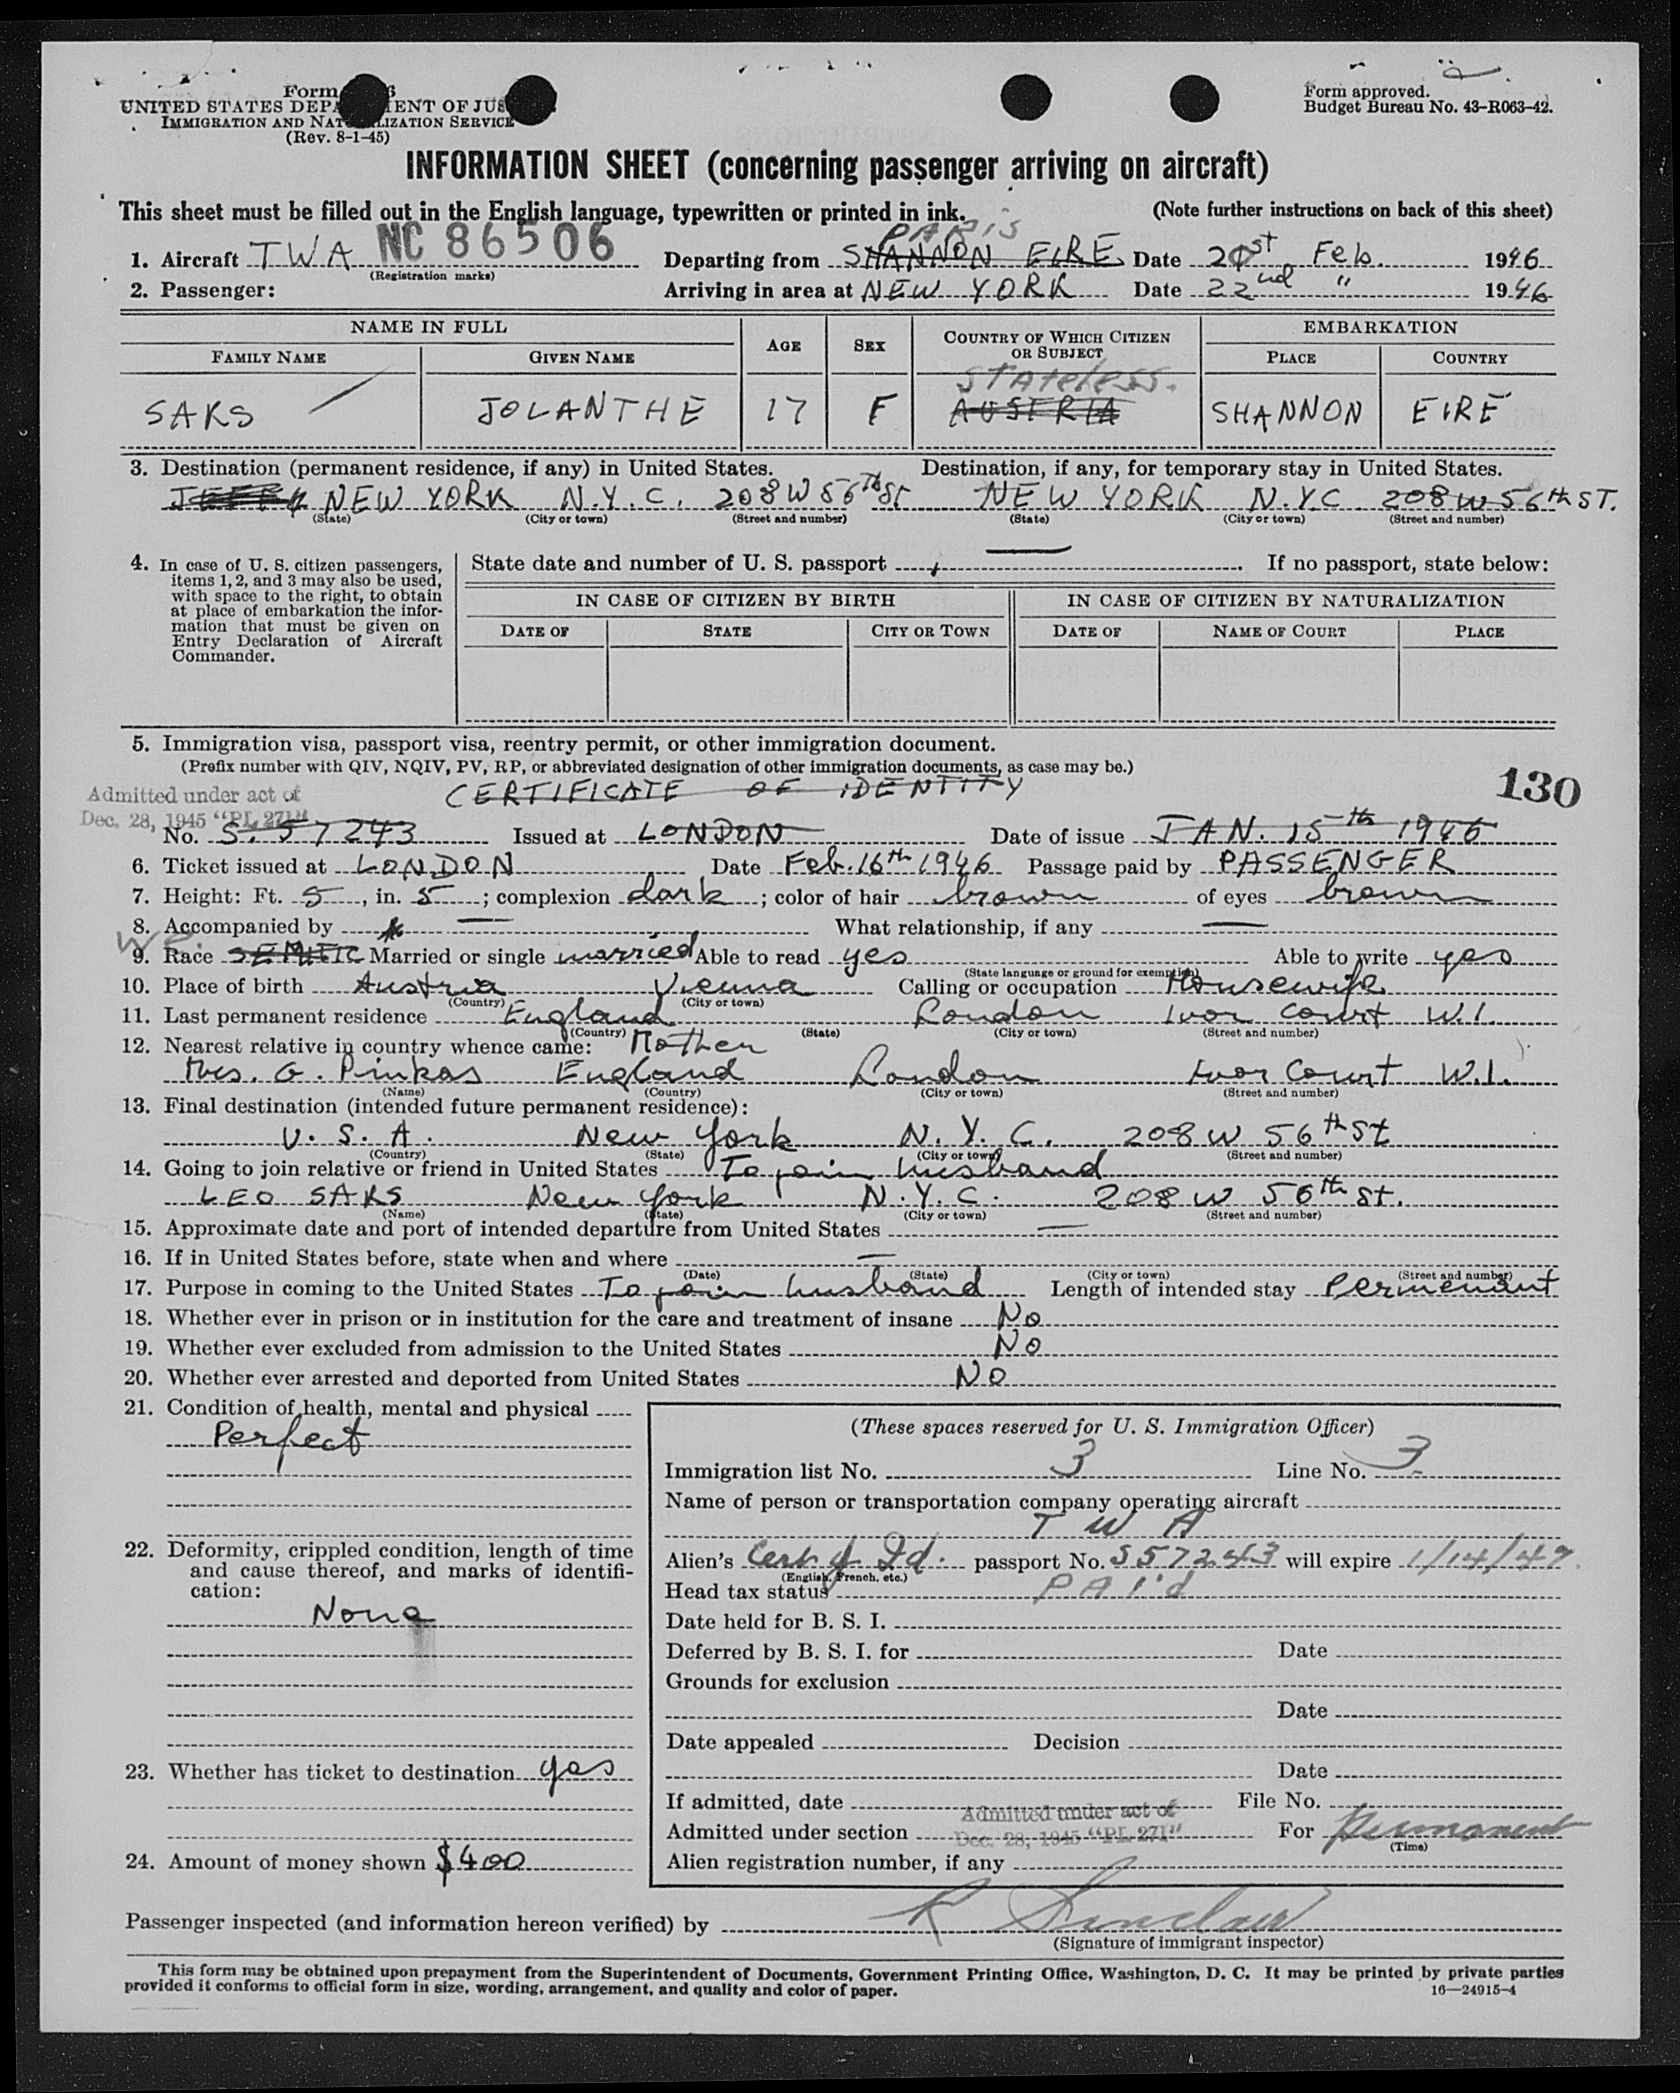 Form
UNITED STATES DEPARTMENT OF JUSTICE
IMMIGRATION AND NATURALIZATION SERVICE
(Rev. 8-1-45)
Form approved.
Budget Bureau No. 43-R063-42.
INFORMATION SHEET (concerning passenger arriving on aircraft)
This sheet must be filled out in the English language, typewritten or printed in ink.
(Note further instructions on back of this sheet)
PARIS
1. Aircraft TWA NC 86506 Departing from SHANNON EIRE Date 21st Feb. 1946
(Registration marks)
2. Passenger: Arriving in area at NEW YORK Date 22nd " 1946
NAME IN FULL
FAMILY NAME GIVEN NAME AGE SEX COUNTRY OF WHICH CITIZEN OR SUBJECT EMBARKATION
PLACE COUNTRY
Stateless.
SAKS JOLANTHE 17 F AUSTRIA SHANNON EIRE
3. Destination (permanent residence, if any) in United States. Destination, if any, for temporary stay in United States.
NEW YORK N.Y.C. 208 W 56th St NEW YORK N.Y.C 208 W 56th ST.
(State) (City or town) (Street and number) (State) (City or town) (Street and number)
4. In case of U. S. citizen passengers, items 1, 2, and 3 may also be used, with space to the right, to obtain at place of embarkation the information that must be given on Entry Declaration of Aircraft Commander.
State date and number of U. S. passport — If no passport, state below:
IN CASE OF CITIZEN BY BIRTH IN CASE OF CITIZEN BY NATURALIZATION
DATE OF STATE CITY OR TOWN DATE OF NAME OF COURT PLACE
5. Immigration visa, passport visa, reentry permit, or other immigration document.
(Prefix number with QIV, NQIV, PV, RP, or abbreviated designation of other immigration documents, as case may be.)
130
Admitted under act of
Dec. 28, 1945 "PL 271"
CERTIFICATE OF IDENTITY
No. S. 57243 Issued at LONDON Date of issue JAN. 15th 1946
6. Ticket issued at LONDON Date Feb. 16th 1946 Passage paid by PASSENGER
7. Height: Ft. 5, in. 5; complexion dark; color of hair brown of eyes brown
8. Accompanied by — What relationship, if any —
9. Race SEMITIC Married or single married Able to read yes Able to write yes
(State language or ground for exemption)
10. Place of birth Austria Vienna Calling or occupation Housewife
(Country) (City or town)
11. Last permanent residence England London Ivor Court W.1.
(Country) (State) (City or town) (Street and number)
12. Nearest relative in country whence came: Mother
Mrs. G. Pinkas England London Ivor Court W.1.
(Name) (Country) (City or town) (Street and number)
13. Final destination (intended future permanent residence):
U. S. A. New York N. Y. C. 208 W 56th St
(Country) (State) (City or town) (Street and number)
14. Going to join relative or friend in United States To join husband
LEO SAKS New York N.Y.C. 208 W 56th St.
(Name) (State) (City or town) (Street and number)
15. Approximate date and port of intended departure from United States —
16. If in United States before, state when and where —
(Date) (State) (City or town) (Street and number)
17. Purpose in coming to the United States To join husband Length of intended stay Permenant
18. Whether ever in prison or in institution for the care and treatment of insane No
19. Whether ever excluded from admission to the United States No
20. Whether ever arrested and deported from United States No
21. Condition of health, mental and physical
Perfect
22. Deformity, crippled condition, length of time and cause thereof, and marks of identification:
None
23. Whether has ticket to destination yes
24. Amount of money shown $400
(These spaces reserved for U. S. Immigration Officer)
Immigration list No. 3 Line No. 3
Name of person or transportation company operating aircraft
T W A
Alien's Cert of Id. passport No. S57243 will expire 1/14/47.
(English, French, etc.)
Head tax status PAI'd
Date held for B. S. I.
Deferred by B. S. I. for Date
Grounds for exclusion
Date
Date appealed Decision
Date
If admitted, date File No.
Admitted under act of
Admitted under section Dec. 28, 1945 "PL 271" For Permanent
(Time)
Alien registration number, if any
Passenger inspected (and information hereon verified) by R Sinclair
(Signature of immigrant inspector)
This form may be obtained upon prepayment from the Superintendent of Documents, Government Printing Office, Washington, D. C. It may be printed by private parties
provided it conforms to official form in size, wording, arrangement, and quality and color of paper.
16—24915-4